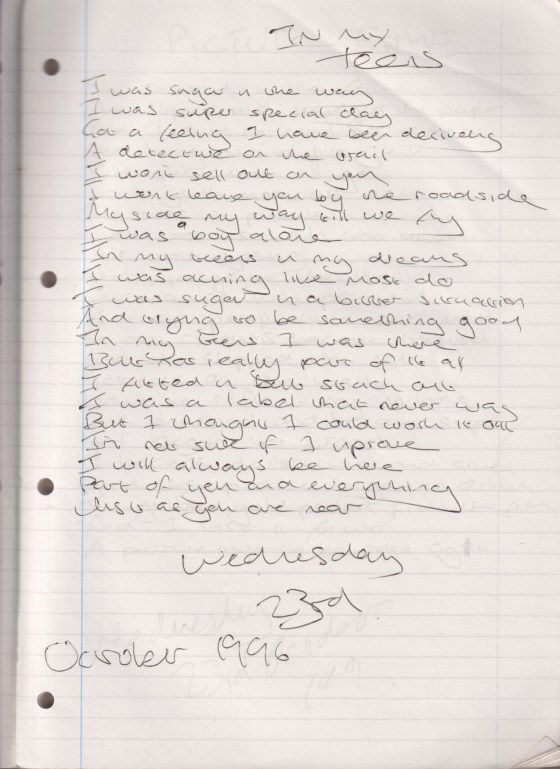 In my
teens
I was sugar n the way
I was super special day
Got a feeling I have been deceiving
A detective on the trail
I wont sell out on you
I wont leave you by the roadside
My side my way till we
I was a boy alone
In my teens n my dreams
I was aching like most do
I was sugar n a bitter situation
And trying to be something good
In my teens I was there
But not really part of it at
I fitted n but stuck out
I was a label that never was
But I thought I could work it out
Im not sure if I nprove
I will always be here
Part of you and everything
as you are near
Wednesday
23rd
October 1996